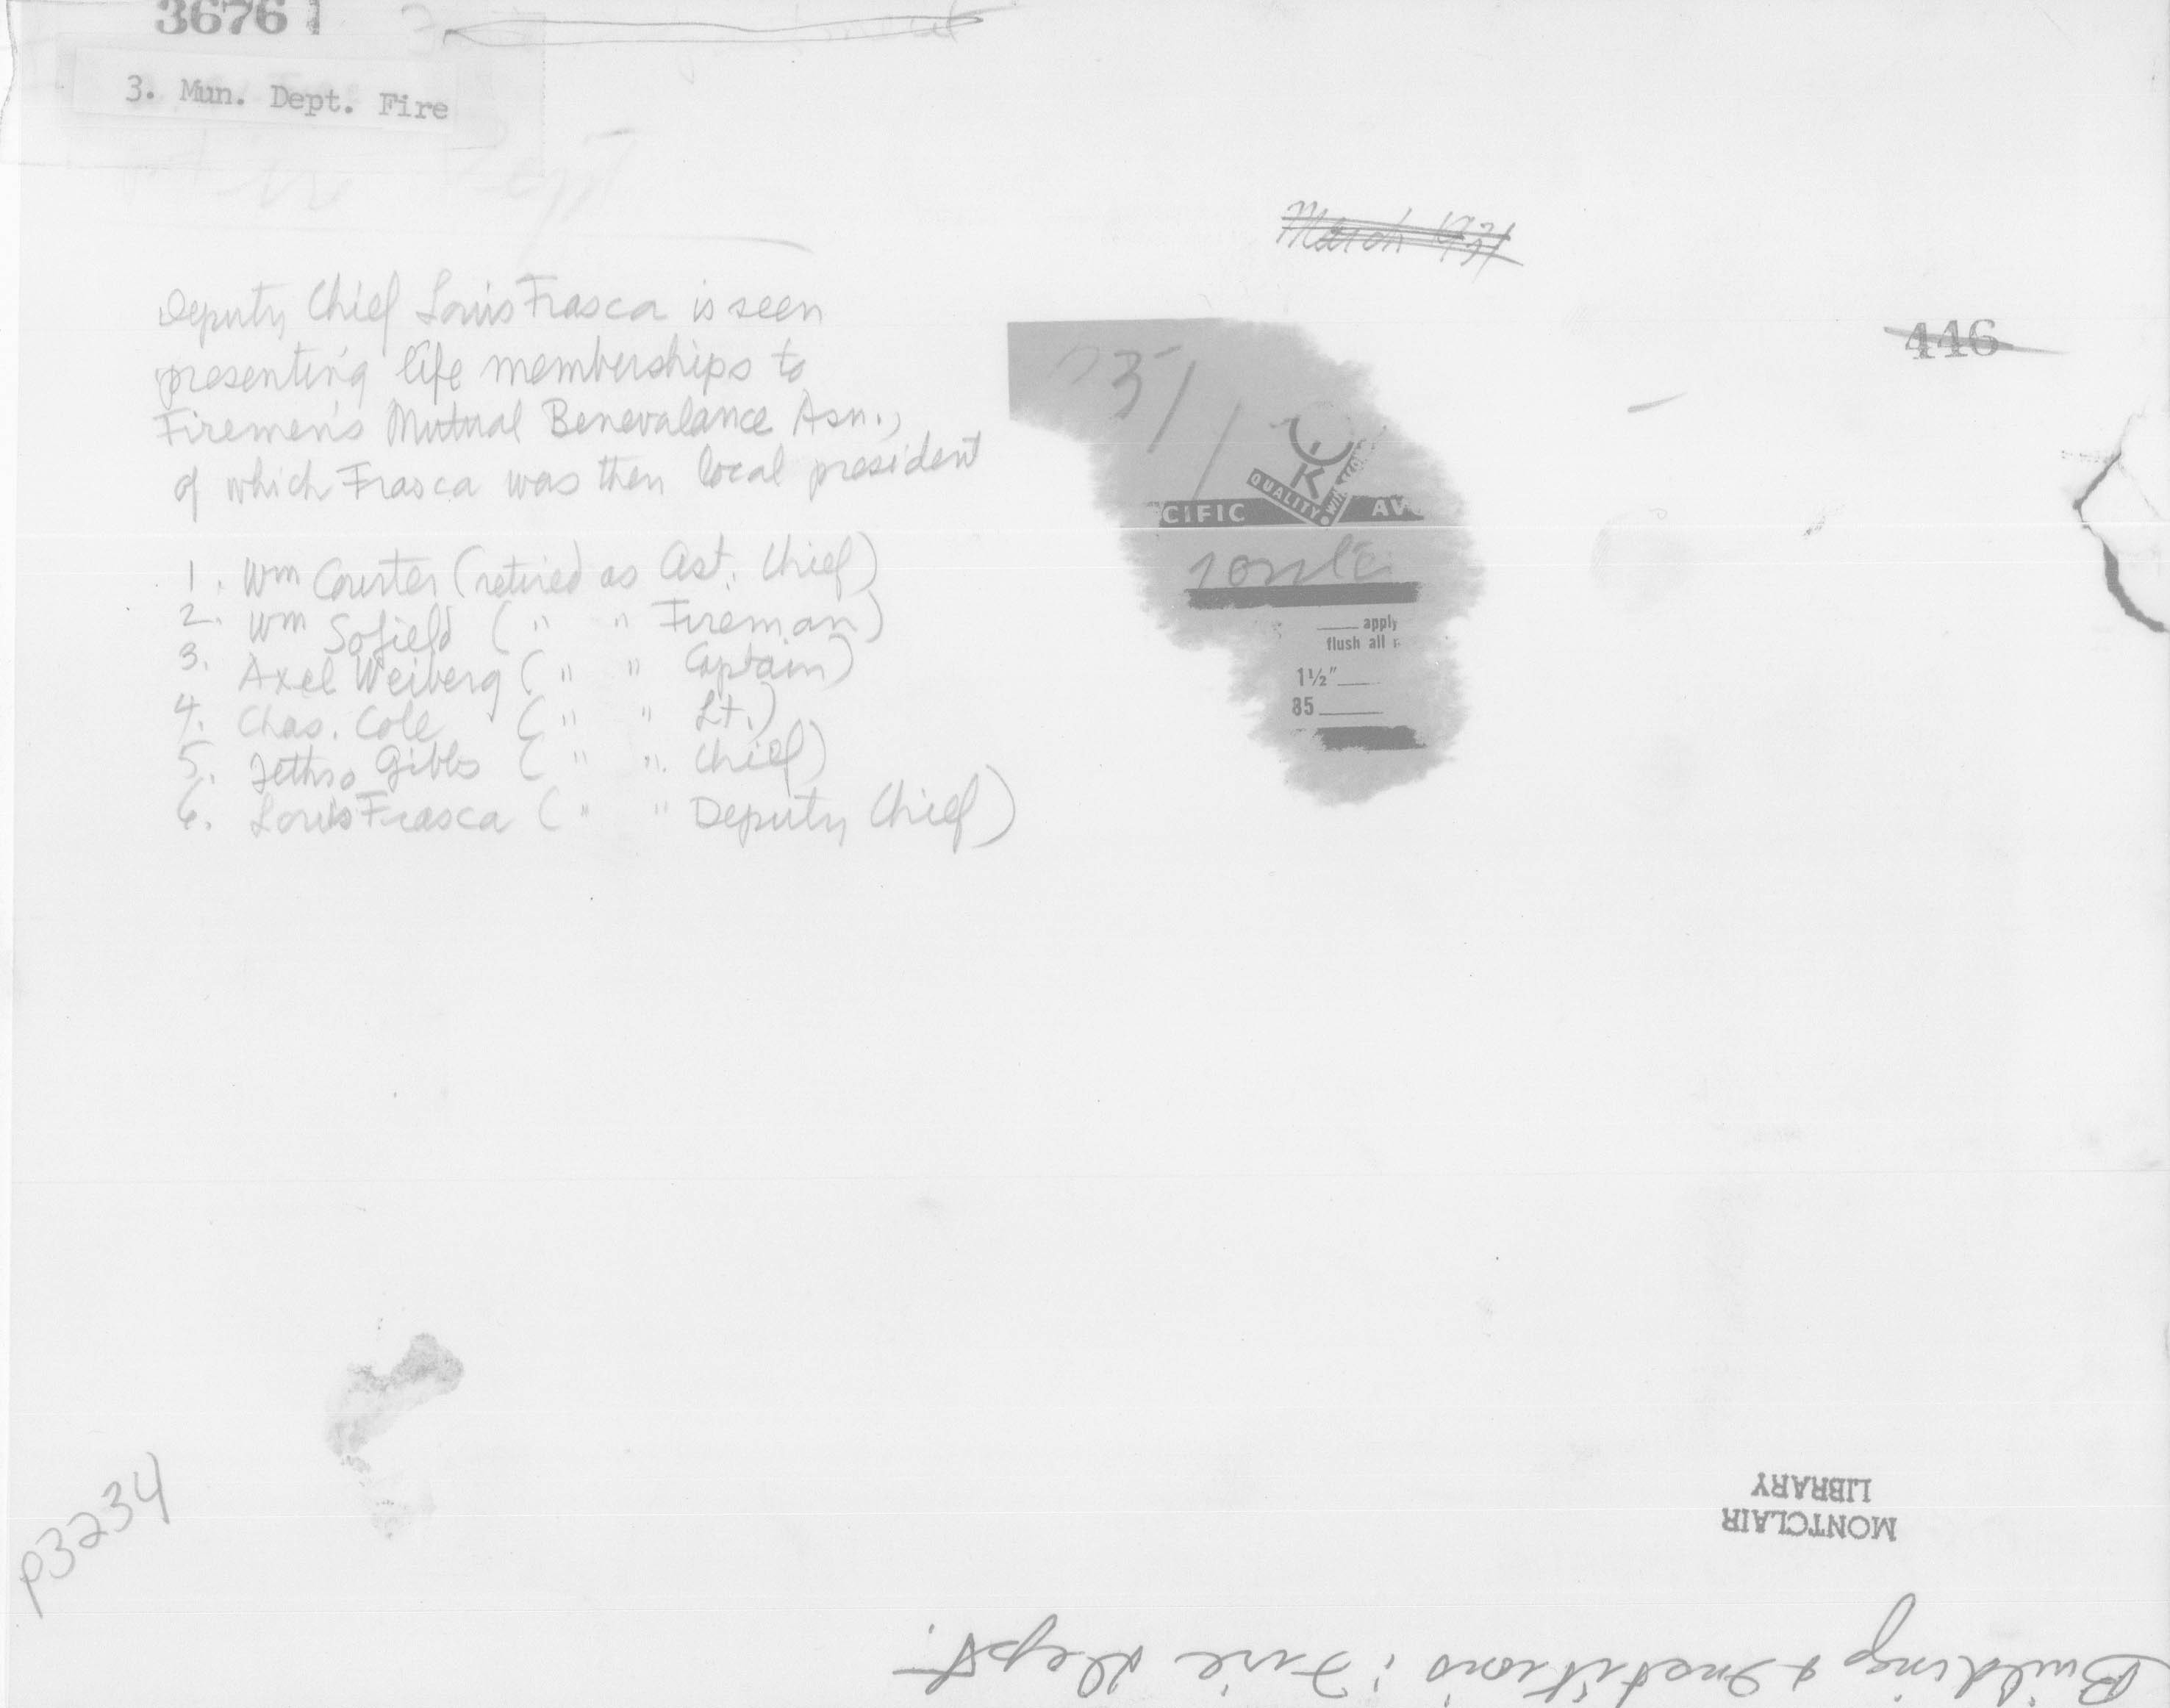 36761
3. Mun. Dept. Fire
March 1931
446
Deputy Chief Louis Frasca is seen
presenting life memberships to
Firemen's Mutual Benevalance Asn.,
of which Frasca was then local president
1. Wm Courter (retired as Ast. Chief)
2. Wm Sofield ( " " Fireman)
3. Axel Weiberg ( " " Captain)
4. Chas. Cole ( " " Lt.)
5. Jethro Gibbs ( " " Chief)
6. Louis Frasca ( " " Deputy Chief)
QUALITY
CIFIC AV
apply
flush all
1½"
85
p3234
MONTCLAIR
LIBRARY
Buildings & Institutions: Fire Dept.